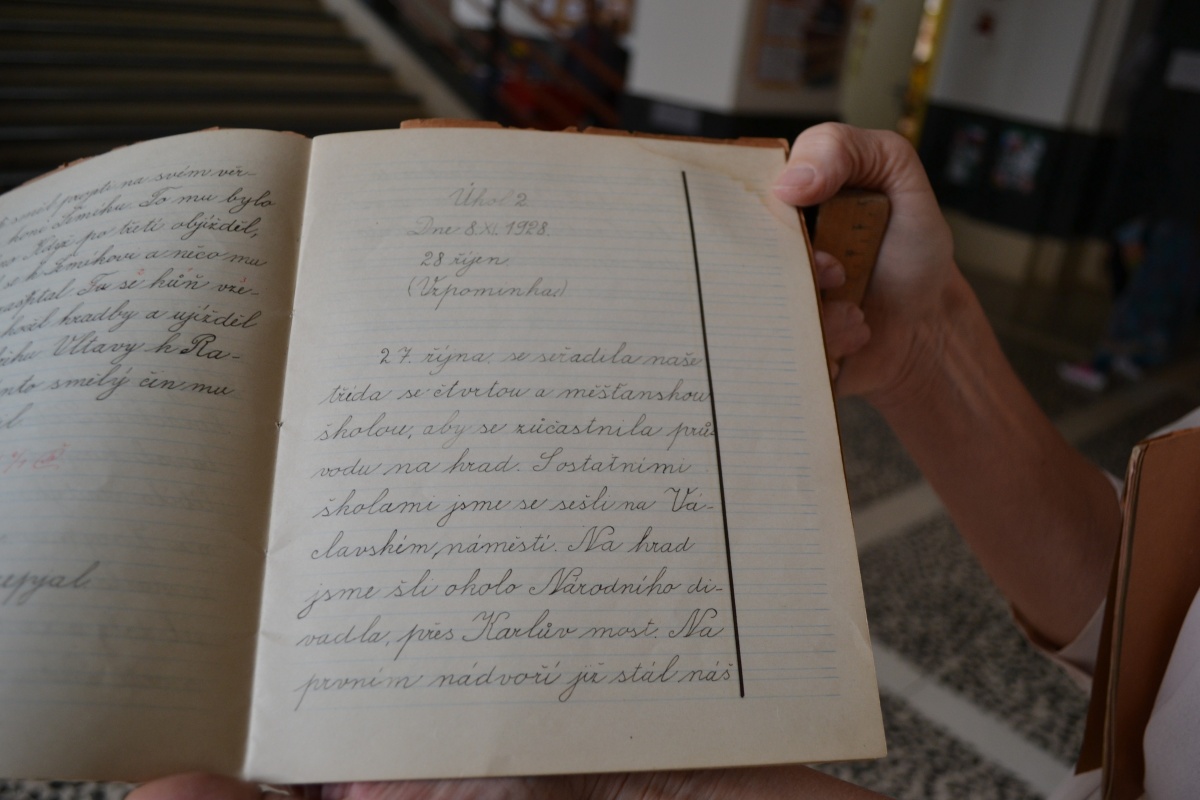 směl projeti na svém věr-
koni Šemíku. To mu bylo
Když po třetí objížděl,
se k Šemíkovi a něco mu
Tu se kůň vze-
hradby a ujížděl
Vltavy k Ra-
nto smělý čin mu
Úkol 2
Dne 8.XI. 1928.
28 říjen
(Vzpomínka)
27. října se seřadila naše
třída se čtvrtou a měšťanskou
školou, aby se zúčastnila prů-
vodu na hrad. S ostatními
školami jsme se sešli na Vá-
clavském náměstí. Na hrad
jsme šli okolo Národního di-
vadla, přes Karlův most. Na
prvním nádvoří již stál náš